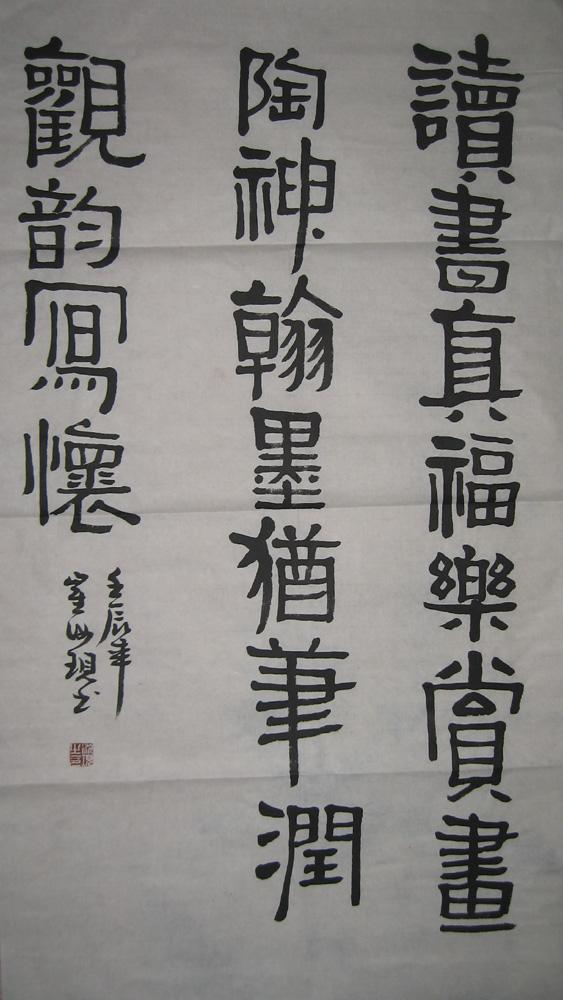 讀書真福樂賞畫
陶神翰墨猶筆潤
觀韵寫懷
壬辰年
崔海琪书